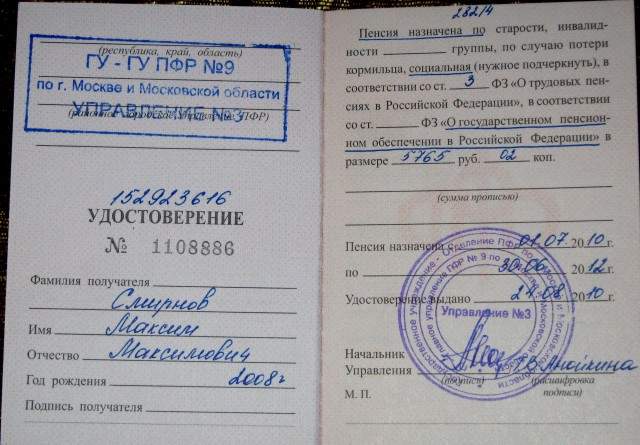 (республика, край, область)
ГУ - ГУ ПФР №9
по г. Москве и Московской области
УПРАВЛЕНИЕ №3
152923616
УДОСТОВЕРЕНИЕ
№ 1108886
Фамилия получателя
Смирнов
Имя Максим
Отчество Максимович
Год рождения 2008г
Подпись получателя
282/4
Пенсия назначена по старости, инвалид-
ности группы, по случаю потери
кормильца, социальная (нужное подчеркнуть), в
соответствии со ст. 3 ФЗ «О трудовых пен-
сиях в Российской Федерации», в соответствии
со ст. ФЗ «О государственном пенсион-
ном обеспечении в Российской Федерации» в
размере 5765 руб. 02 коп.
(сумма прописью)
Пенсия назначена с 01.07.2010 г.
по 30.06 2012 г.
Удостоверение выдано 24.08 2010 г.
Управление №3
Начальник
Управления
(подпись) (расшифровка
М. П. подписи)